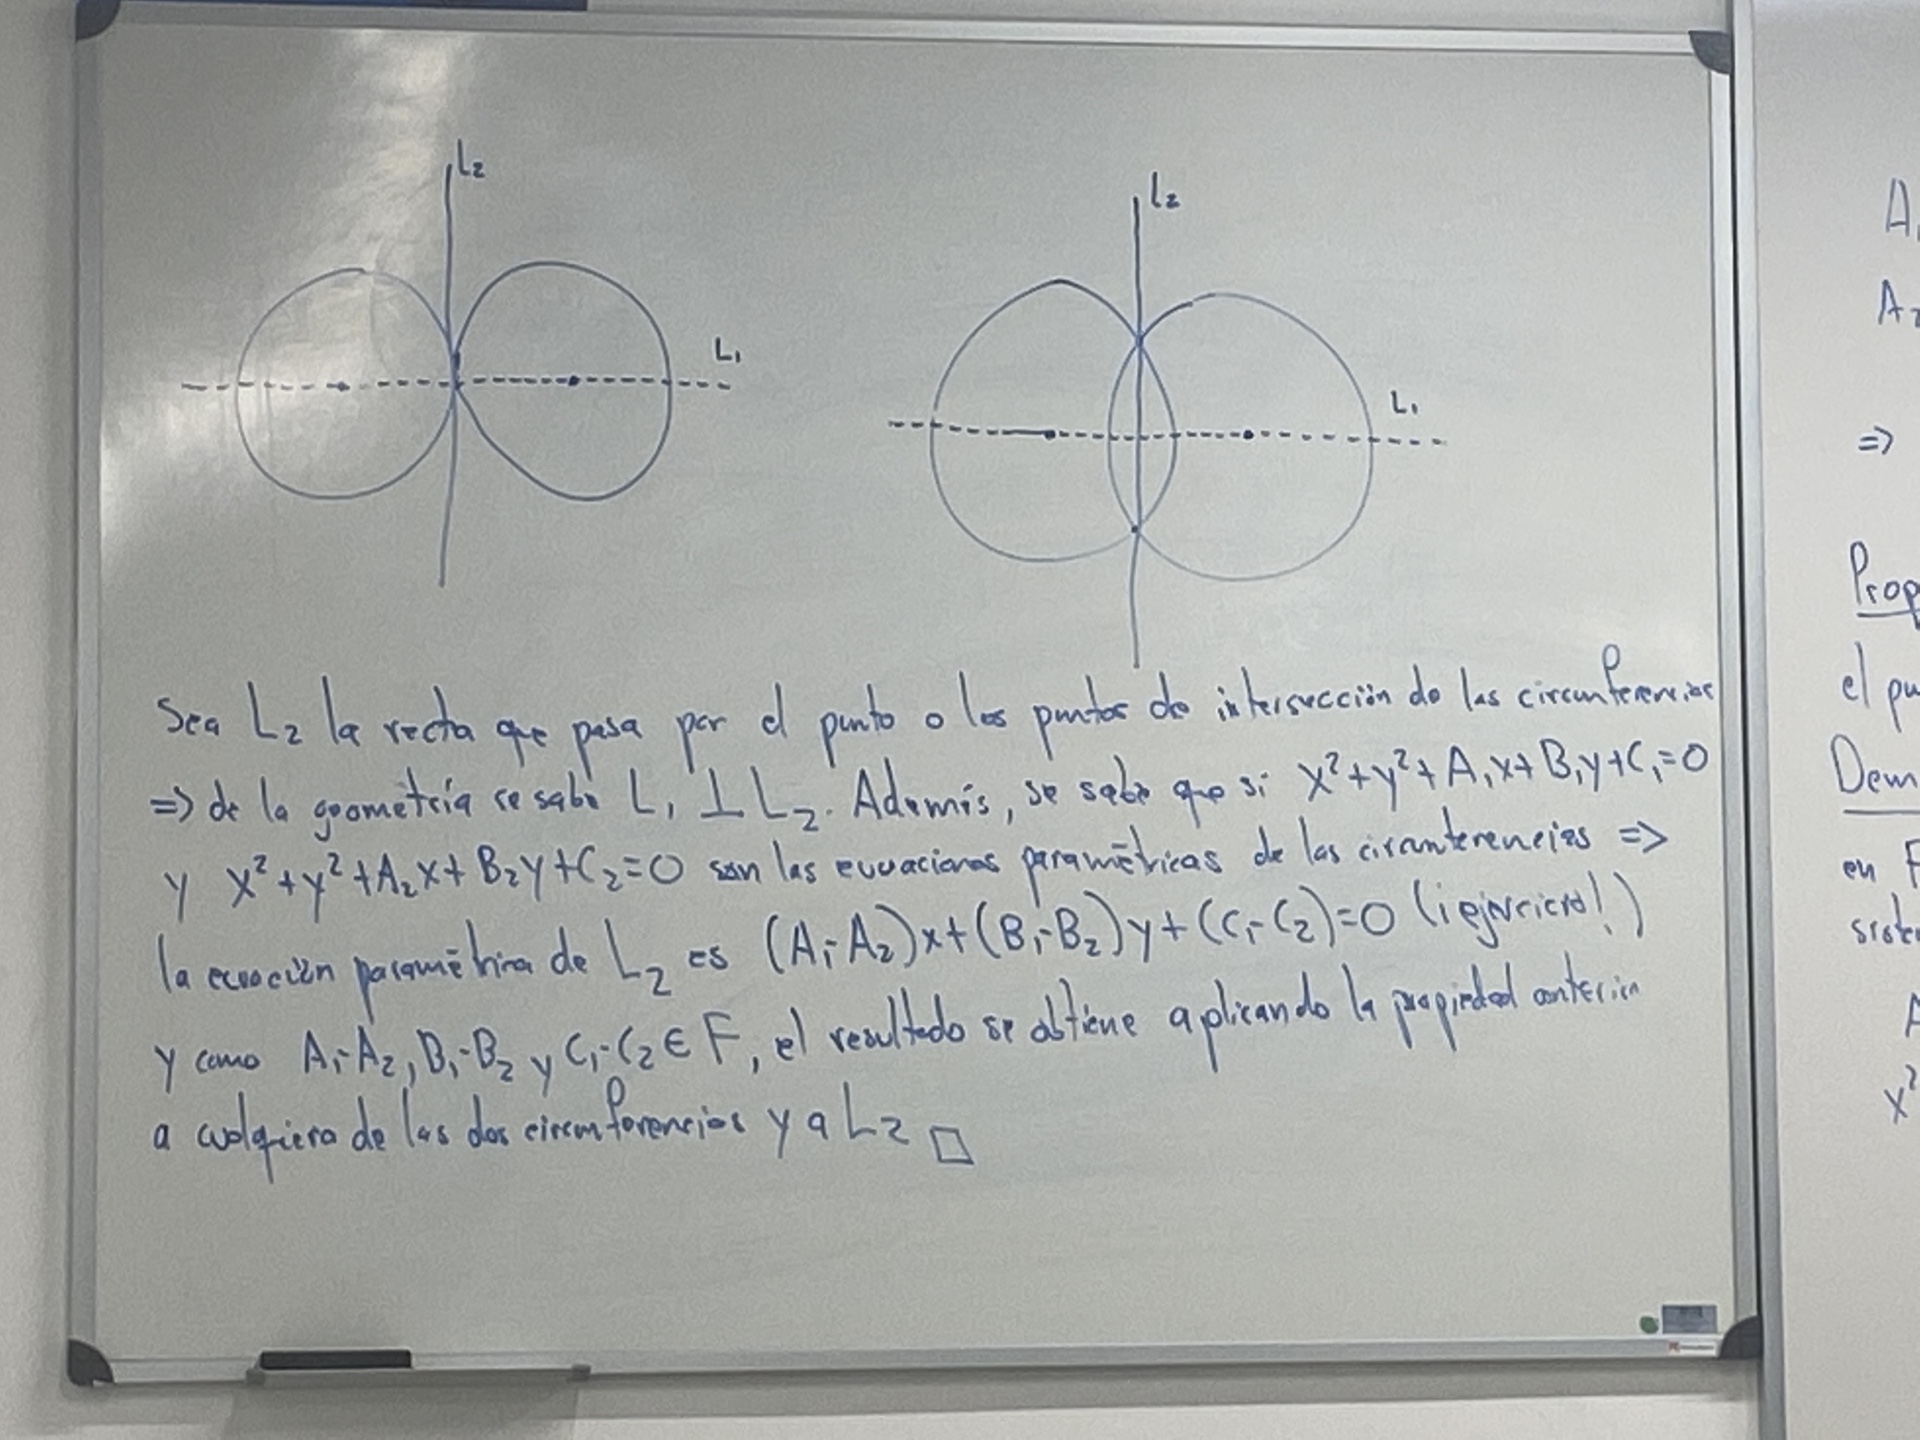 L₂
L₁
L₂
L₁
Sea L₂ la recta que pasa por el punto o los puntos de intersección de las circunferencias
=> de la geometría se sabe L₁ ⊥ L₂. Además, se sabe que si x²+y²+A₁x+B₁y+C₁=0
y x²+y²+A₂x+B₂y+C₂=0 son las ecuaciones paramétricas de las circunferencias =>
la ecuación paramétrica de L₂ es (A₁-A₂)x+(B₁-B₂)y+(C₁-C₂)=0 (¡ejercicio!)
y como A₁-A₂, B₁-B₂ y C₁-C₂ ∈ F, el resultado se obtiene aplicando la propiedad anterior
a cualquiera de las dos circunferencias y a L₂ □
A
A₂
=>
Prop
el pu
Dem
en F
siste
A
x²